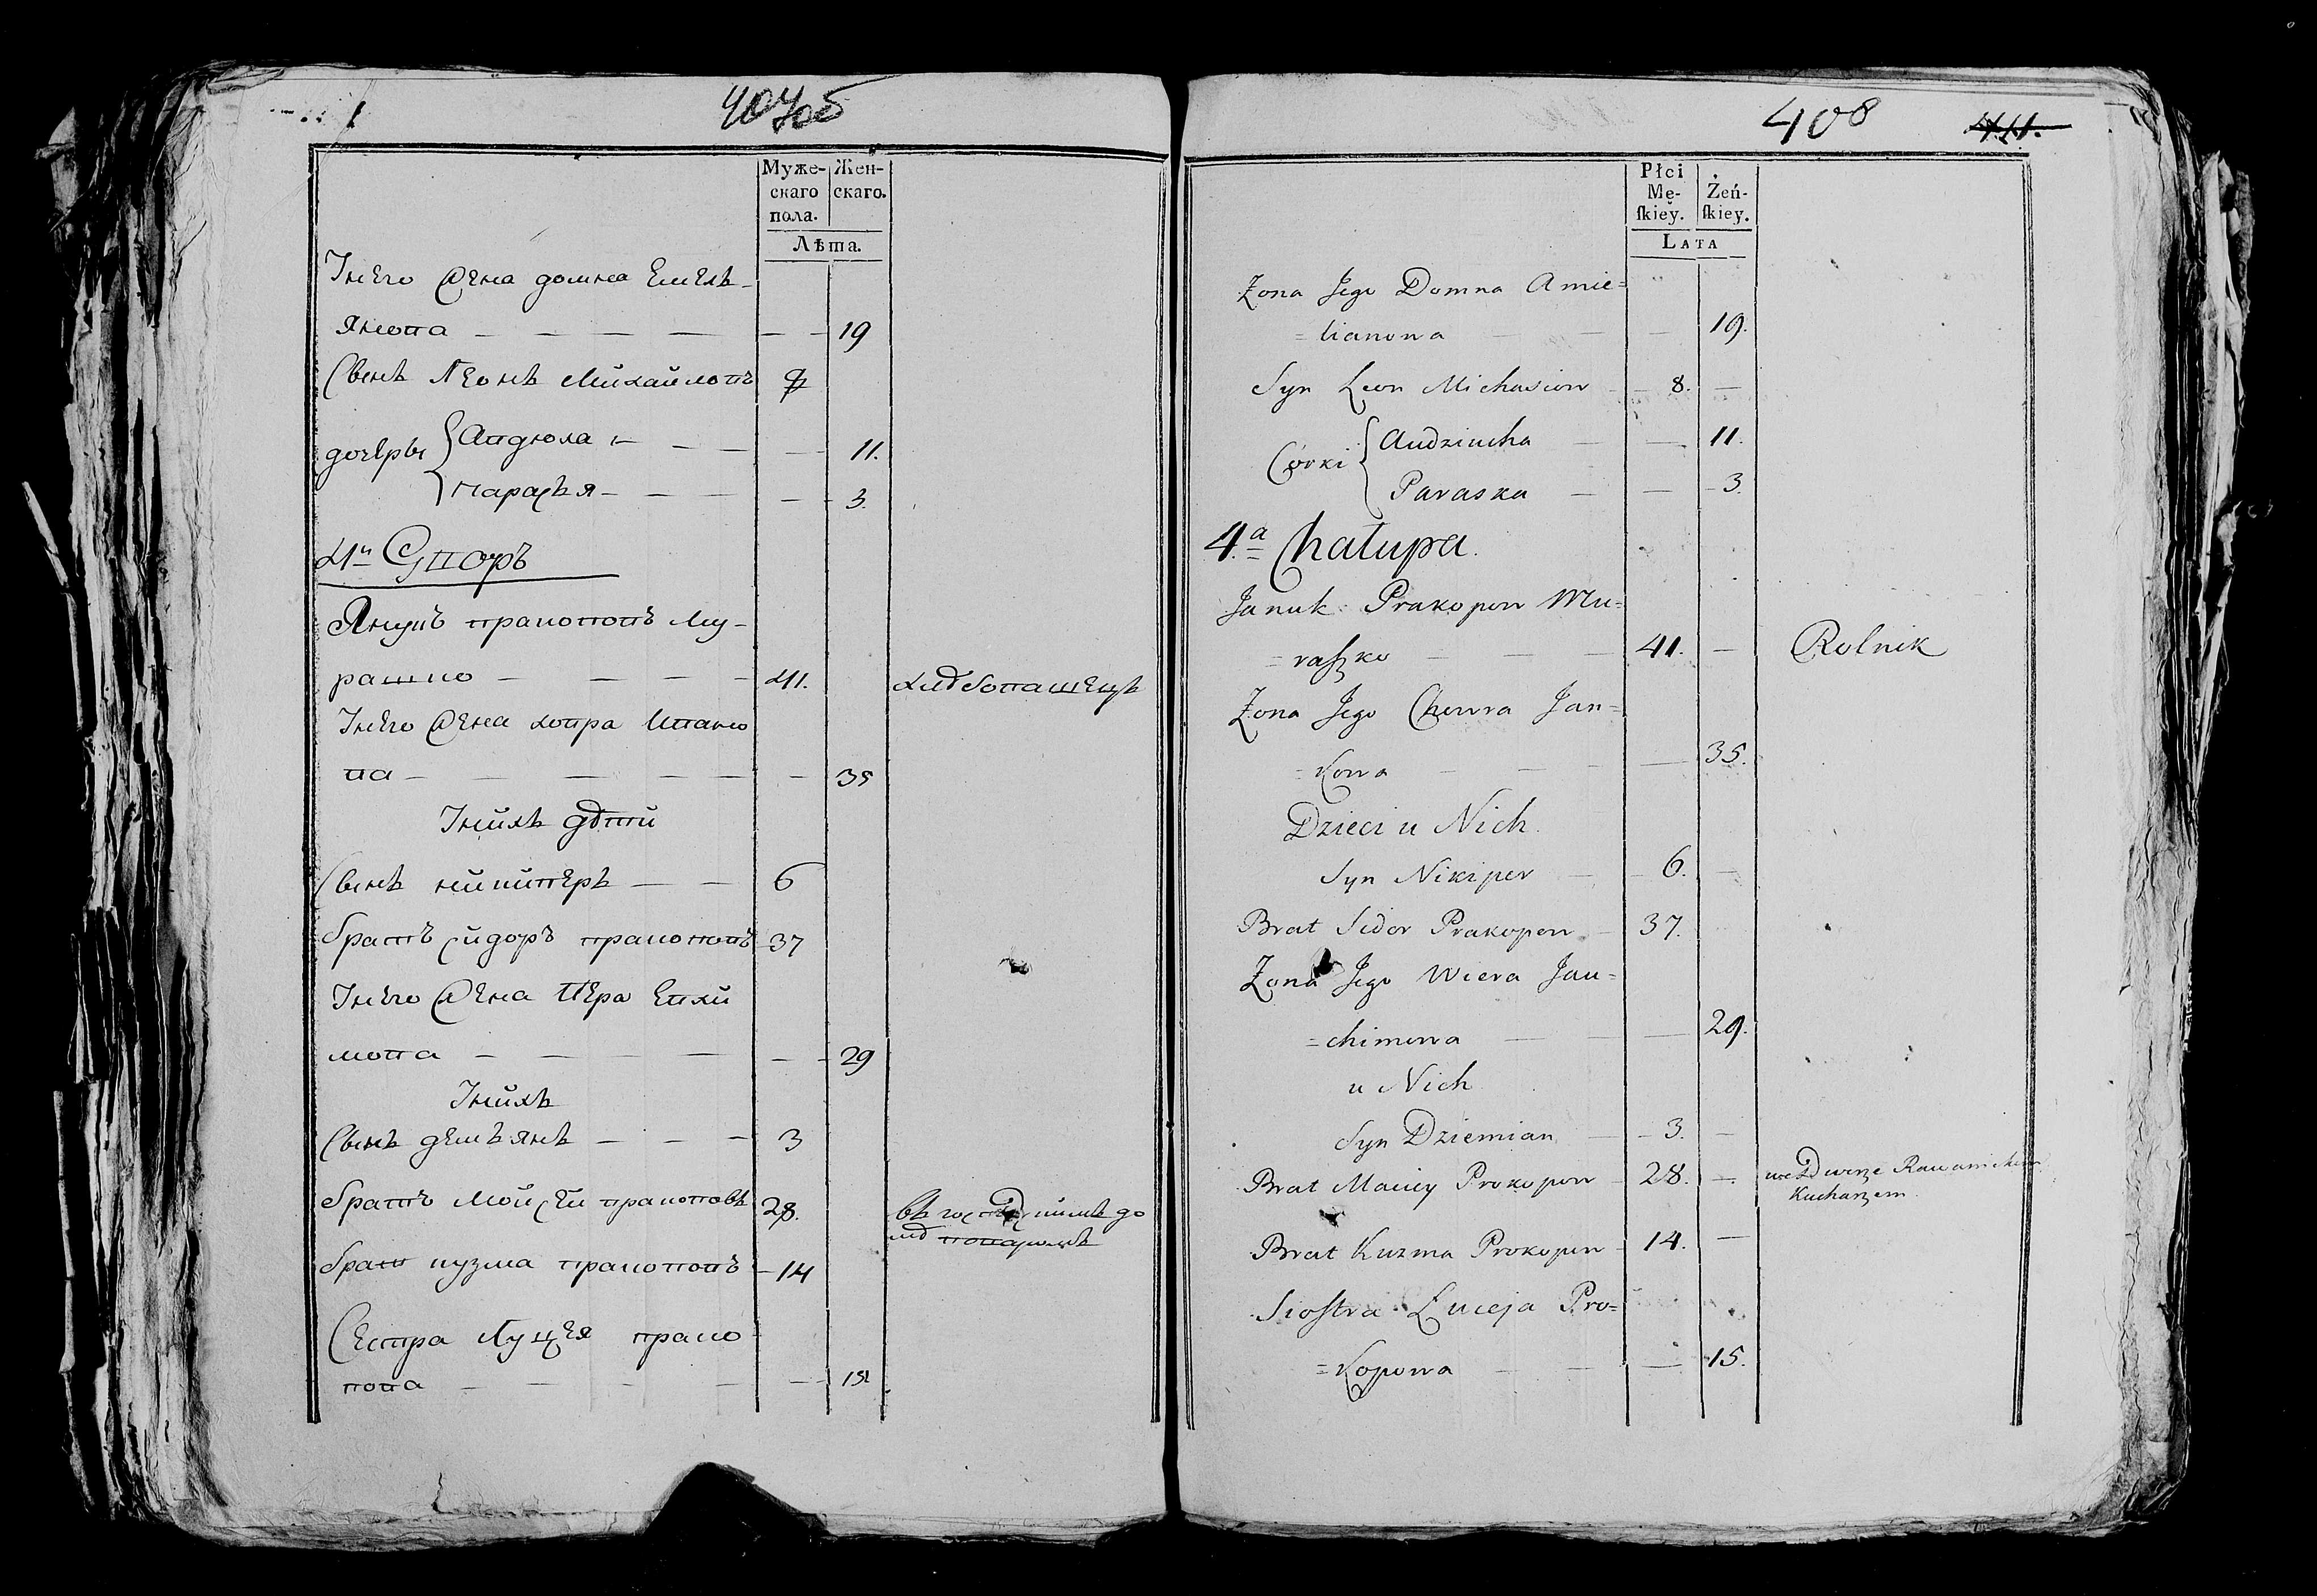 407об
Муже- Жен-
скаго скаго.
пола.
Лѣта.
Унего жена домна Емелѣ-
янова — — — — — 19
Сынъ Леонъ Михайловъ 8
дочеры Авдюха — — — 11.
Парасья — — — — 3.
4й Дворъ
Янукъ пракоповъ Му-
рашко — — — — 41. хлѣбопашецъ
Унего жена ховра
ва — — — — — — 35
Унихъ дѣти
Сынъ никиперъ — — 6
братъ сидоръ пракоповъ 37
Унего жена Вера Евхи
мова — — — — — 29
Унихъ
Сынъ демьянъ — — — 3
братъ Мойсей пракоповъ 28. до
мѣ поваромъ
брат кузма пракоповъ 14
Сестра Луцея прако
пова — — — — — 15
408 411.
Płci
Mę- Żeń-
ſkiey. ſkiey.
LATA
Żona Jego Domna Amie=
=lianowa — — — 19.
Syn Leon Michasiow — 8. —
Corki Audziucha — — 11.
Paraska — — 3.
4.a Chałupa.
Januk Prakopow Mu=
=raſzko — — — 41. — Rolnik
Żona Jego Chewra Jan=
=kowa — — — — 35.
Dzieci u Nich.
Syn Nikiper — 6. —
Brat Sidor Prakopow — 37.
Żona Jego Wiera Jau=
=chimowa — — — 29.
u Nich
Syn Dziemian — 3. —
Brat Maciey Prokopow 28. — we Dworze
Kucharzem
Brat Kuzma Prokopow 14. —
Sioſtra Łuceja Pro=
=kopowa — — — 15.